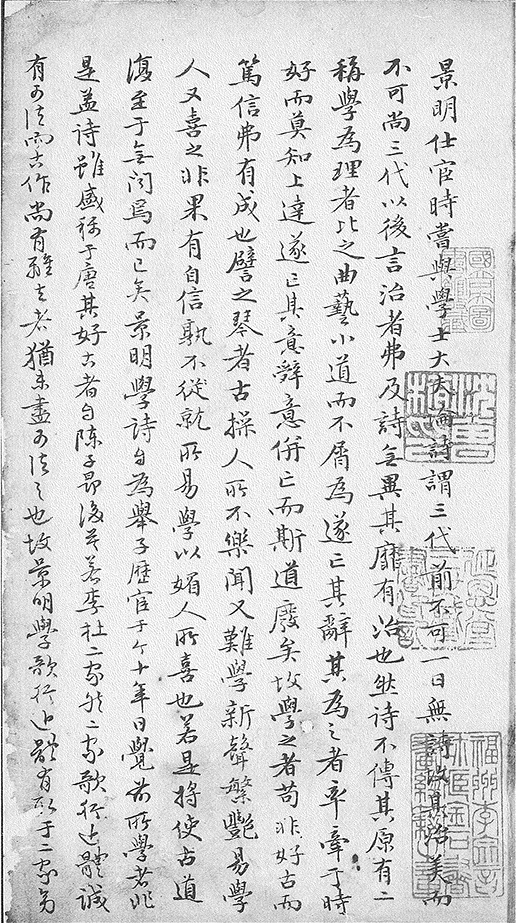 景明仕宦時嘗與學士大夫論詩謂三代前不可一日無詩故其治美而
不可尚三代以後言治者弗及詩無異其靡有治也然詩不傳其原有二
稱學為理者比之曲藝小道而不屑為遂亡其辭其為之者率牽于時
好而莫知上達遂亡其意辭意併亡而斯道廢矣故學之者苟非好古而
篤信弗有成也譬之琴者古操人所不樂聞又難學新聲繁艷易學
人又喜之非果有自信孰不從就所易學以媚人所喜也若是將使古道
復至于無聞焉而已矣景明學詩自為舉子歷官于今十年日覺前所學者非
是蓋詩雖盛稱于唐其好古者自陳子昂後莫若李杜二家然二家歌行近體誠
有可法而古作尚有離去者猶未盡可法之也故景明學歌行近體有取于二家旁